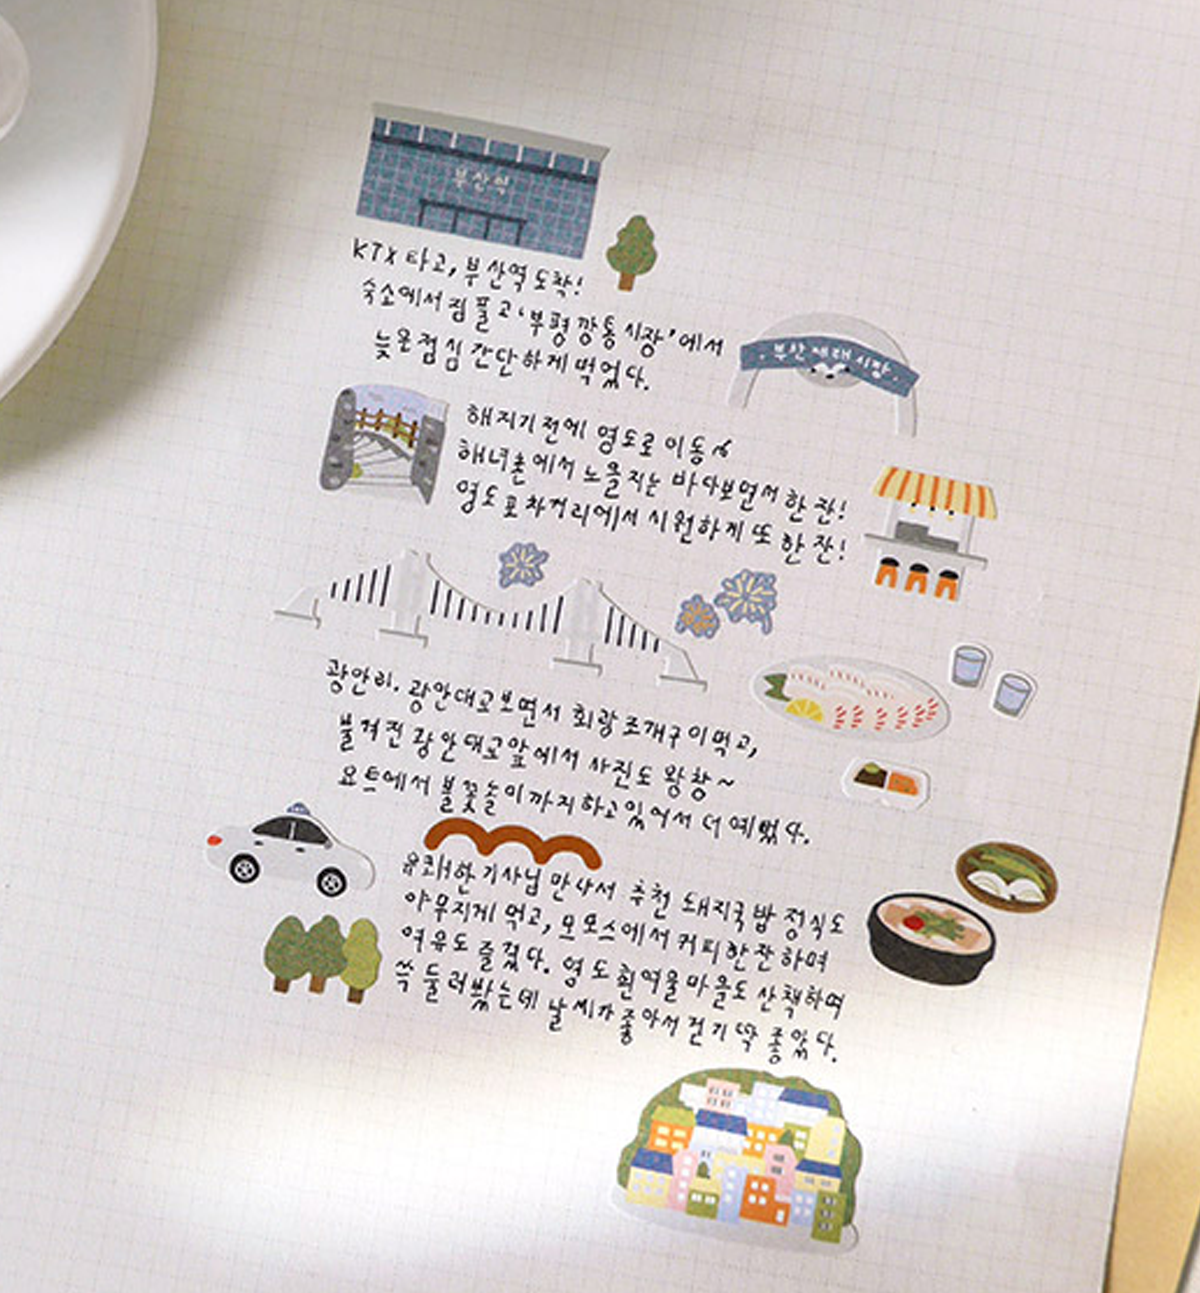 부산역
KTX 타고, 부산역 도착!
숙소에서 짐 풀고 '부평깡통시장'에서
늦은 점심 간단하게 먹었다.
부산재래시장
해지기 전에 영도로 이동~
해녀촌에서 노을지는 바다보면서 한 잔!
영도포차거리에서 시원하게 또 한 잔!
광안리. 광안대교보면서 회랑 조개구이 먹고,
불켜진 광안대교 앞에서 사진도 왕창~
요트에서 불꽃놀이까지 하고있어서 더 예뻤다.
유쾌한 기사님 만나서 추천 돼지국밥 정식도
야무지게 먹고, 모모스에서 커피 한 잔 하며
여유도 즐겼다. 영도 흰여울마을도 산책하며
쓱 둘러봤는데 날씨가 좋아서 걷기 딱 좋았다.